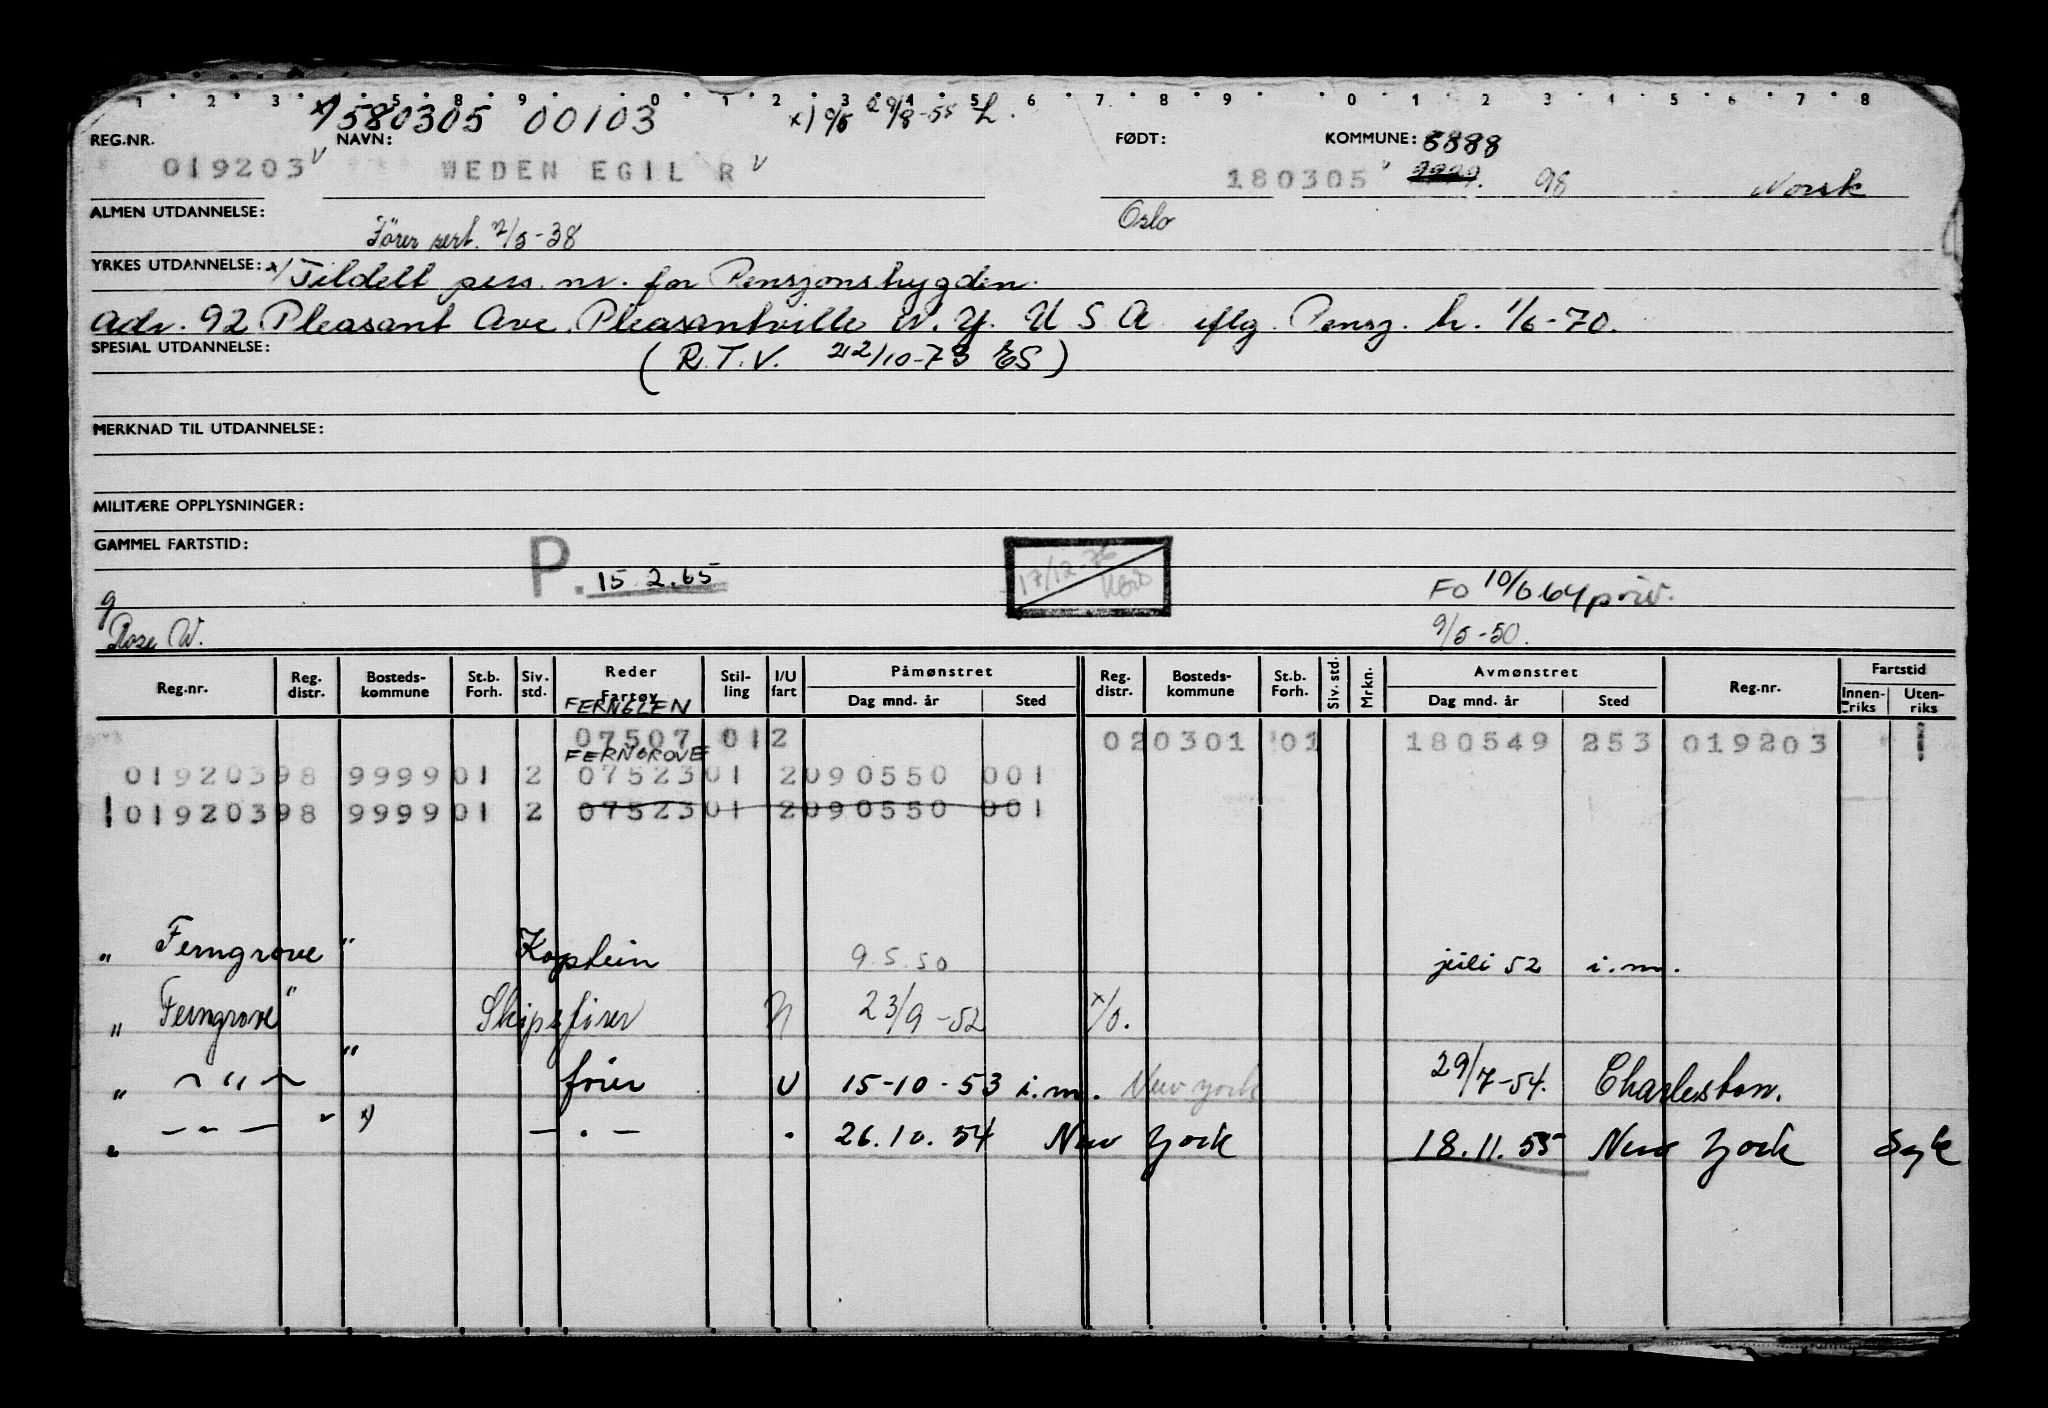 1 2 3 5 8 9 0 1 2 3 4 5 6 7 8 9 0 1 2 3 4 5 6 7 8
x) 580305 00103 x) 29/8-55 L.
REG.NR. NAVN: FØDT: KOMMUNE: 8888
019203 v WEDEN EGIL R v 180305 98 Norsk
ALMEN UTDANNELSE: Oslo
Fører sert. 2/5-38
YRKES UTDANNELSE: x) Tildelt pers. nr. for Pensjonstrygden.
Adr. 92 Pleasant Ave, Pleasantville N.Y. U S A iflg. Pensj. h. 1/6-70.
SPESIAL UTDANNELSE: (R.T.V. 22/10-73 ES)
MERKNAD TIL UTDANNELSE:
MILITÆRE OPPLYSNINGER:
GAMMEL FARTSTID:
P. 15.2.65 17/12-76 FO 10/6 64 priv.
g
Rose W. 9/5-50.
Reg.nr. Reg. distr. Bosteds-kommune St.b. Forh. Siv. std. Reder Fartøy Stil-ling I/U fart Påmønstret Dag mnd. år Sted Reg. distr. Bosteds-kommune St.b. Forh. Siv. std. Mrkn. Avmønstret Dag mnd. år Sted Reg.nr. Fartstid Innen-riks Uten-riks
FERNGLEN
07507 012 020301 01 180549 253 019203 1
FERNGROVE
01920398 999901 2 0752301 2090550 001
01920398 999901 2 0752301 2090550 001
" Ferngrove " Kaptein 9.5.50 juli 52 i.m.
" Ferngrove " Skipsfører N 23/9-52 x/o.
" — " — " fører U 15-10-53 i.m. New York 29/7-54. Charleston.
" — " — v x) — . — . 26.10.54 New York 18.11.55 New York Syk